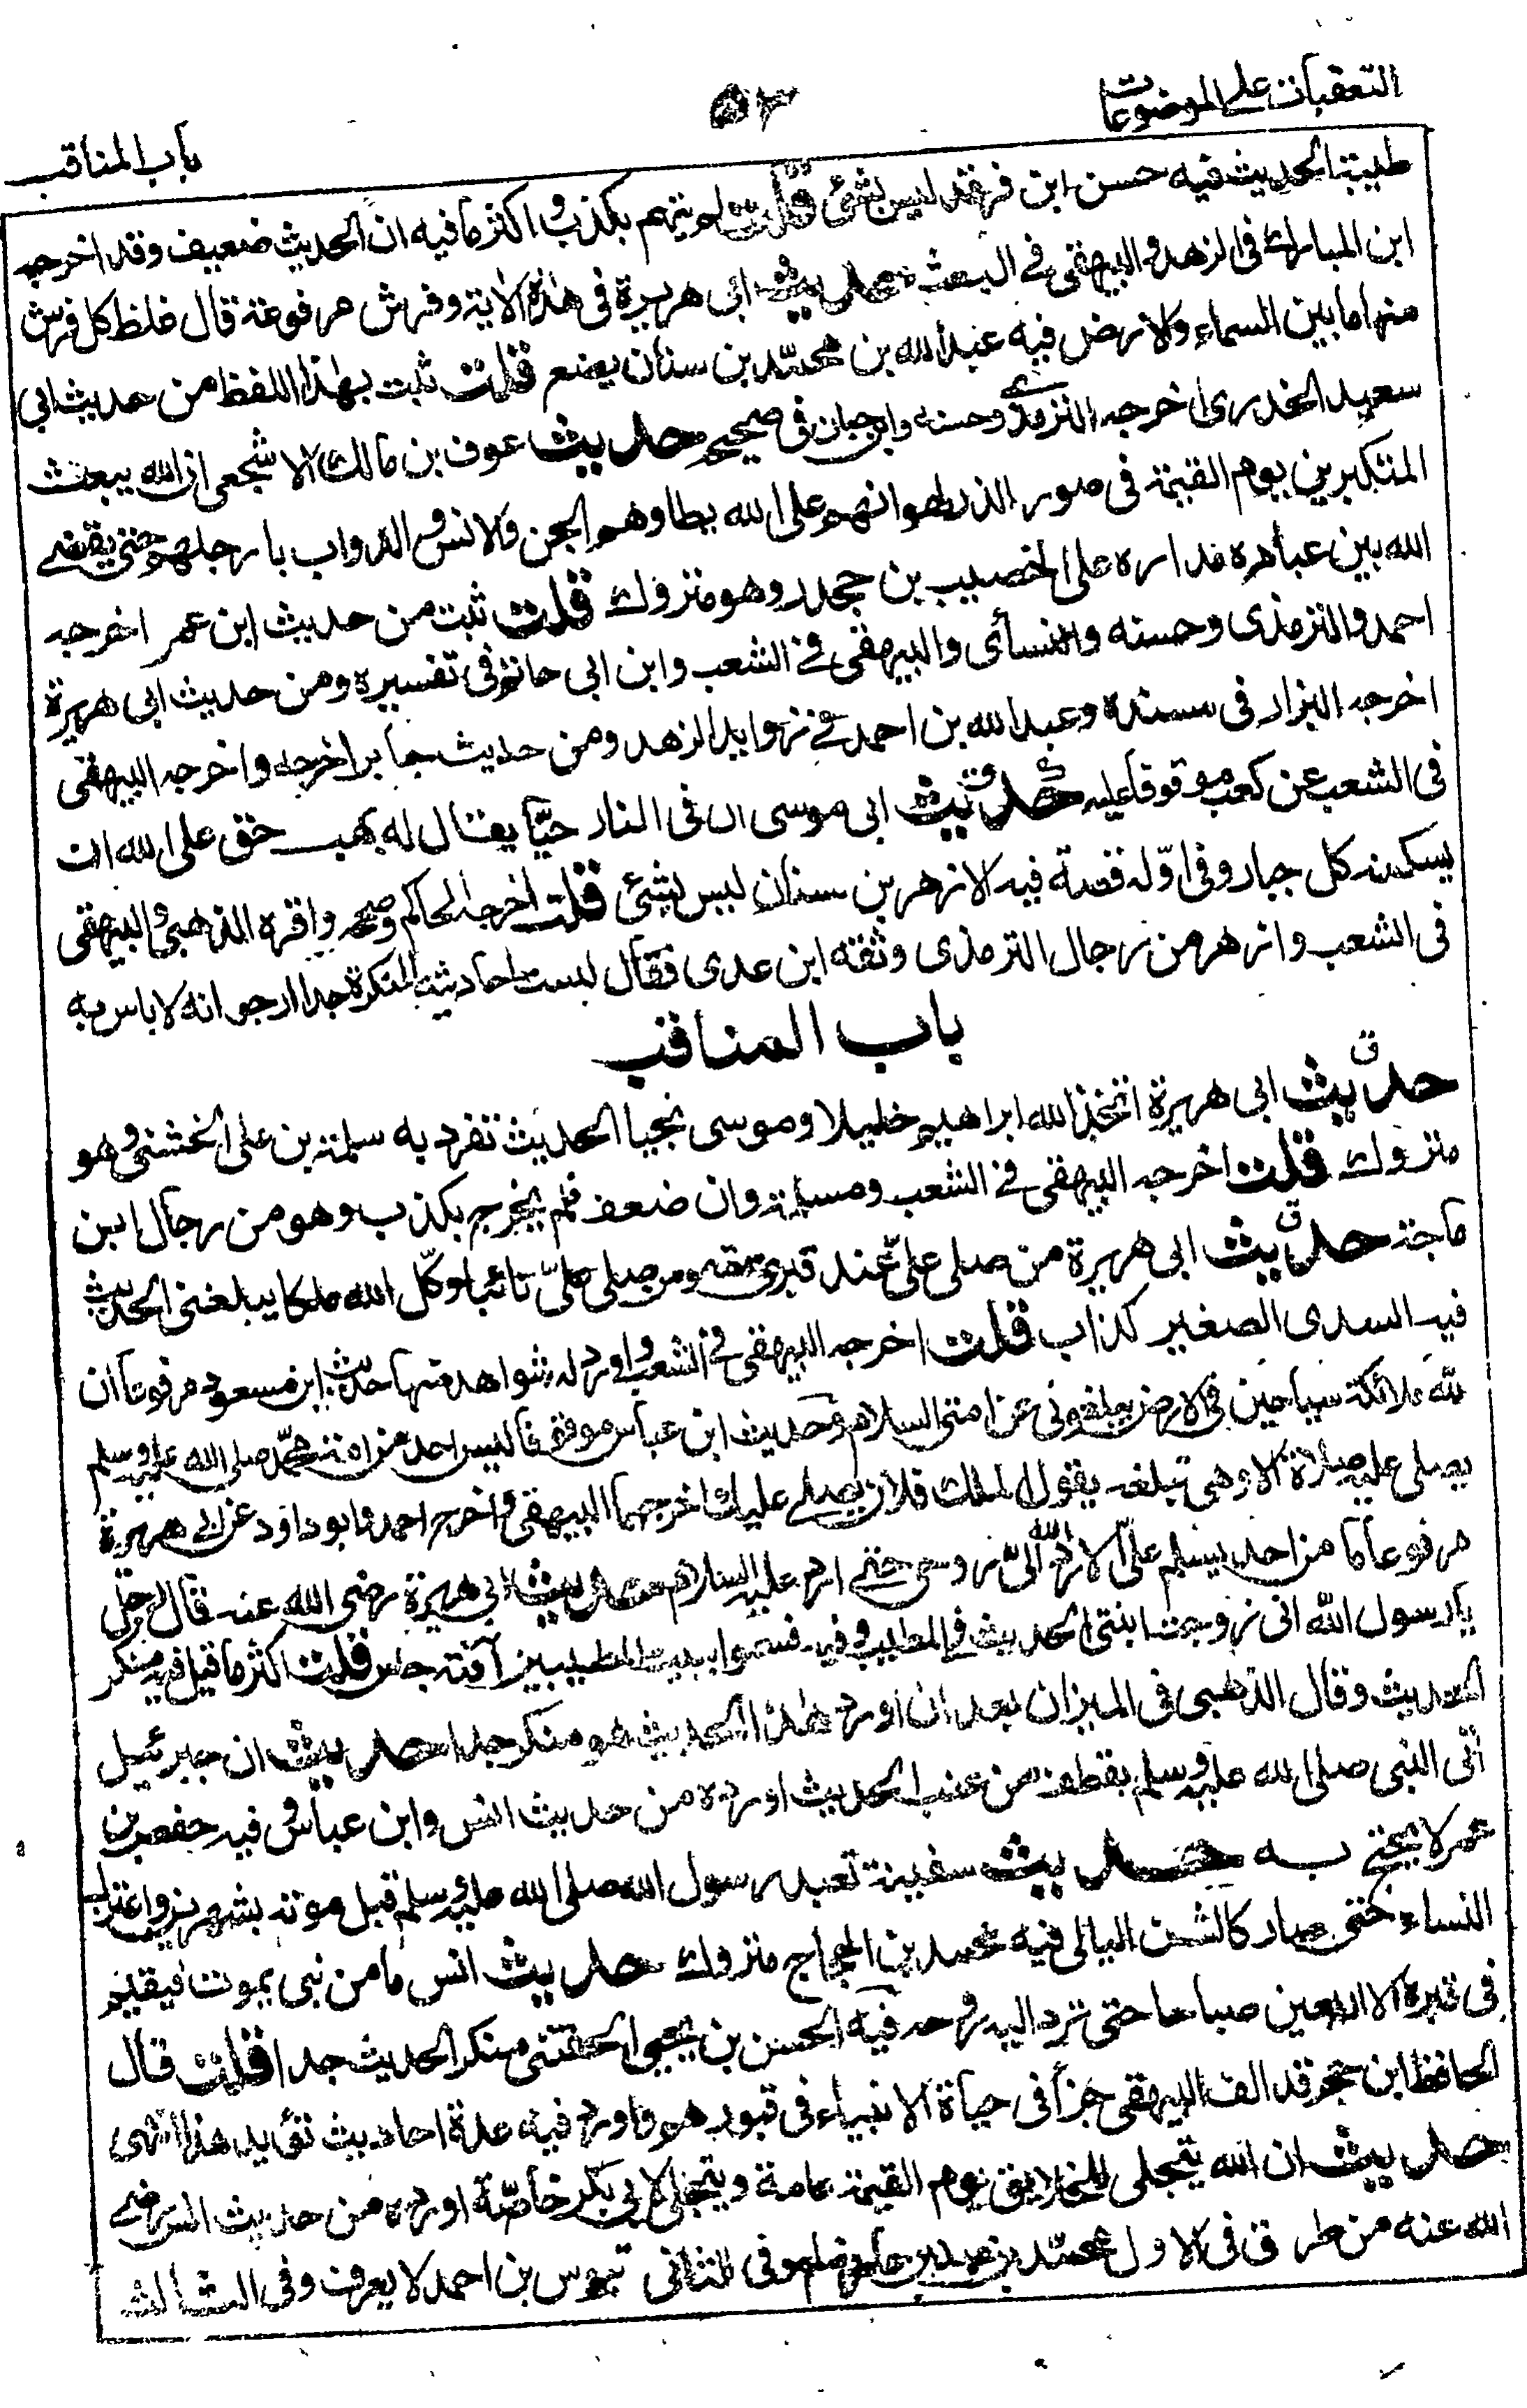 التعقبات على الموضوعات
۵۲
باب المناقب
طيبة الحديث فيه حسن ابن فرقد ليس بشئ قلت لم يتهم بكذب و اكثر ما فيه ان الحديث ضعيف وقد اخرجه
ابن المبارك فى الزهد والبيهقى فے البعث حديث ابى هريرة فى هذه الاية وفرش مرفوعة قال غلظ كل فرش
منها ما بين السماء والارض فيه عبد الله بن محمد بن سنان يضع قلت ثبت بهذا اللفظ من حديث ابى
سعيد الخدرى اخرجه الترمذى وحسنه وابن حبان فى صحيحه حديث عوف بن مالك الاشجعى ان الله يبعث
المتكبرين يوم القيمة فى صور الذر لهوانهم على الله يطاوهم الجن والانس والدواب بارجلهم حتى يقضے
الله بين عباده مداره على الخصيب بن جحدر وهو متروك قلت ثبت من حديث ابن عمر اخرجه
احمد والترمذى وحسنه والنسائى والبيهقى فے الشعب وابن ابى حاتم فى تفسيره ومن حديث ابى هريرة
اخرجه البزار فى مسنده وعبد الله بن احمد فے زوايد الزهد ومن حديث جابر اخرجه واخرجه البيهقى
فى الشعب عن كعب موقوفا عليه حديث ابى موسى ان فى النار جبا يقال له هبهب حق على الله ان
يسكنه كل جبار وفى اوّله قصة فيه الازهر بن سنان ليس بشئ قلت اخرجه الحاكم وصححه واقره الذهبى والبيهقى
فى الشعب وازهر من رجال الترمذى وثقه ابن عدى فقال ليست احاديثه بالمنكرة جدا ارجو انه لا باس به
باب المناقب
حديث ابى هريرة اتخذ الله ابراهيم خليلا وموسى نجيا الحديث تفرد به سلمة بن على الخشنى وهو
متروك قلت اخرجه البيهقى فے الشعب ومسلمة وان ضعف فلم يجرح بكذب وهو من رجال ابن
ماجة حديث ابى هريرة من صلى علىّ عند قبرى سمعته ومن صلى علىّ نائيا وكّل الله ملكا يبلغنى الحديث
فيه السدى الصغير كذاب قلت اخرجه البيهقى فے الشعب و اورد له شواهد منها حديث ابن مسعود مرفوعا ان
لله ملائكة سياحين فى الارض يبلغونى عن امتى السلام وحديث ابن عباس موقوفا ليس احد من امة محمد صلى الله عليه وسلم
يصلى عليه صلاة الا وهى تبلغه يقول الملك فلان يصلے عليك اخرجهما البيهقى واخرج احمد وابو داود عن ابى هريرة
مرفوعا ما من احد يسلم علىّ الا رد الله الىّ روحى حتے ارد عليه السلام حديث ابى هريرة رضى الله عنه قال رجل
يا رسول الله انى زوجت ابنتى الحديث فے الطيب وفيه فسموا بيت المطيبين آفته جلس قلت اكثر ما قيل فيه منكر
الحديث وقال الذهبى فى الميزان بعد ان اورد هذا الحديث هو منكر جدا حديث ان جبرئيل
أتى النبى صلى الله عليه وسلم بقطف من عنب الحديث اورده من حديث انس وابن عباس وفيه حفص بن
عمر لا يحتج به حديث سفينة تعبد رسول الله صلى الله عليه وسلم قبل موته بشهرين واعتزل
النساء حتى صار كالشن البالى فيه محمد بن الحجاج متروك حديث انس ما من نبى يموت فيقيم
فى قبره الا اربعين صباحا حتى ترد اليه روحه فيه الحسن بن يحيى الخشنى منكر الحديث جدا قلت قال
الحافظ ابن حجر قد الف البيهقى جزأ فى حياة الانبياء فى قبورهم واورد فيه عدة احاديث تؤيد هذا انتهى
حديث ان الله يتجلى للخلايق يوم القيمة عامة ويتجلى لابى بكر خاصّة اورده من حديث انس رضے
الله عنه من طرق فى الاول محمد بن عبد بن عامر يضع وفى الثانى بنوس بن احمد لا يعرف وفى الثالث